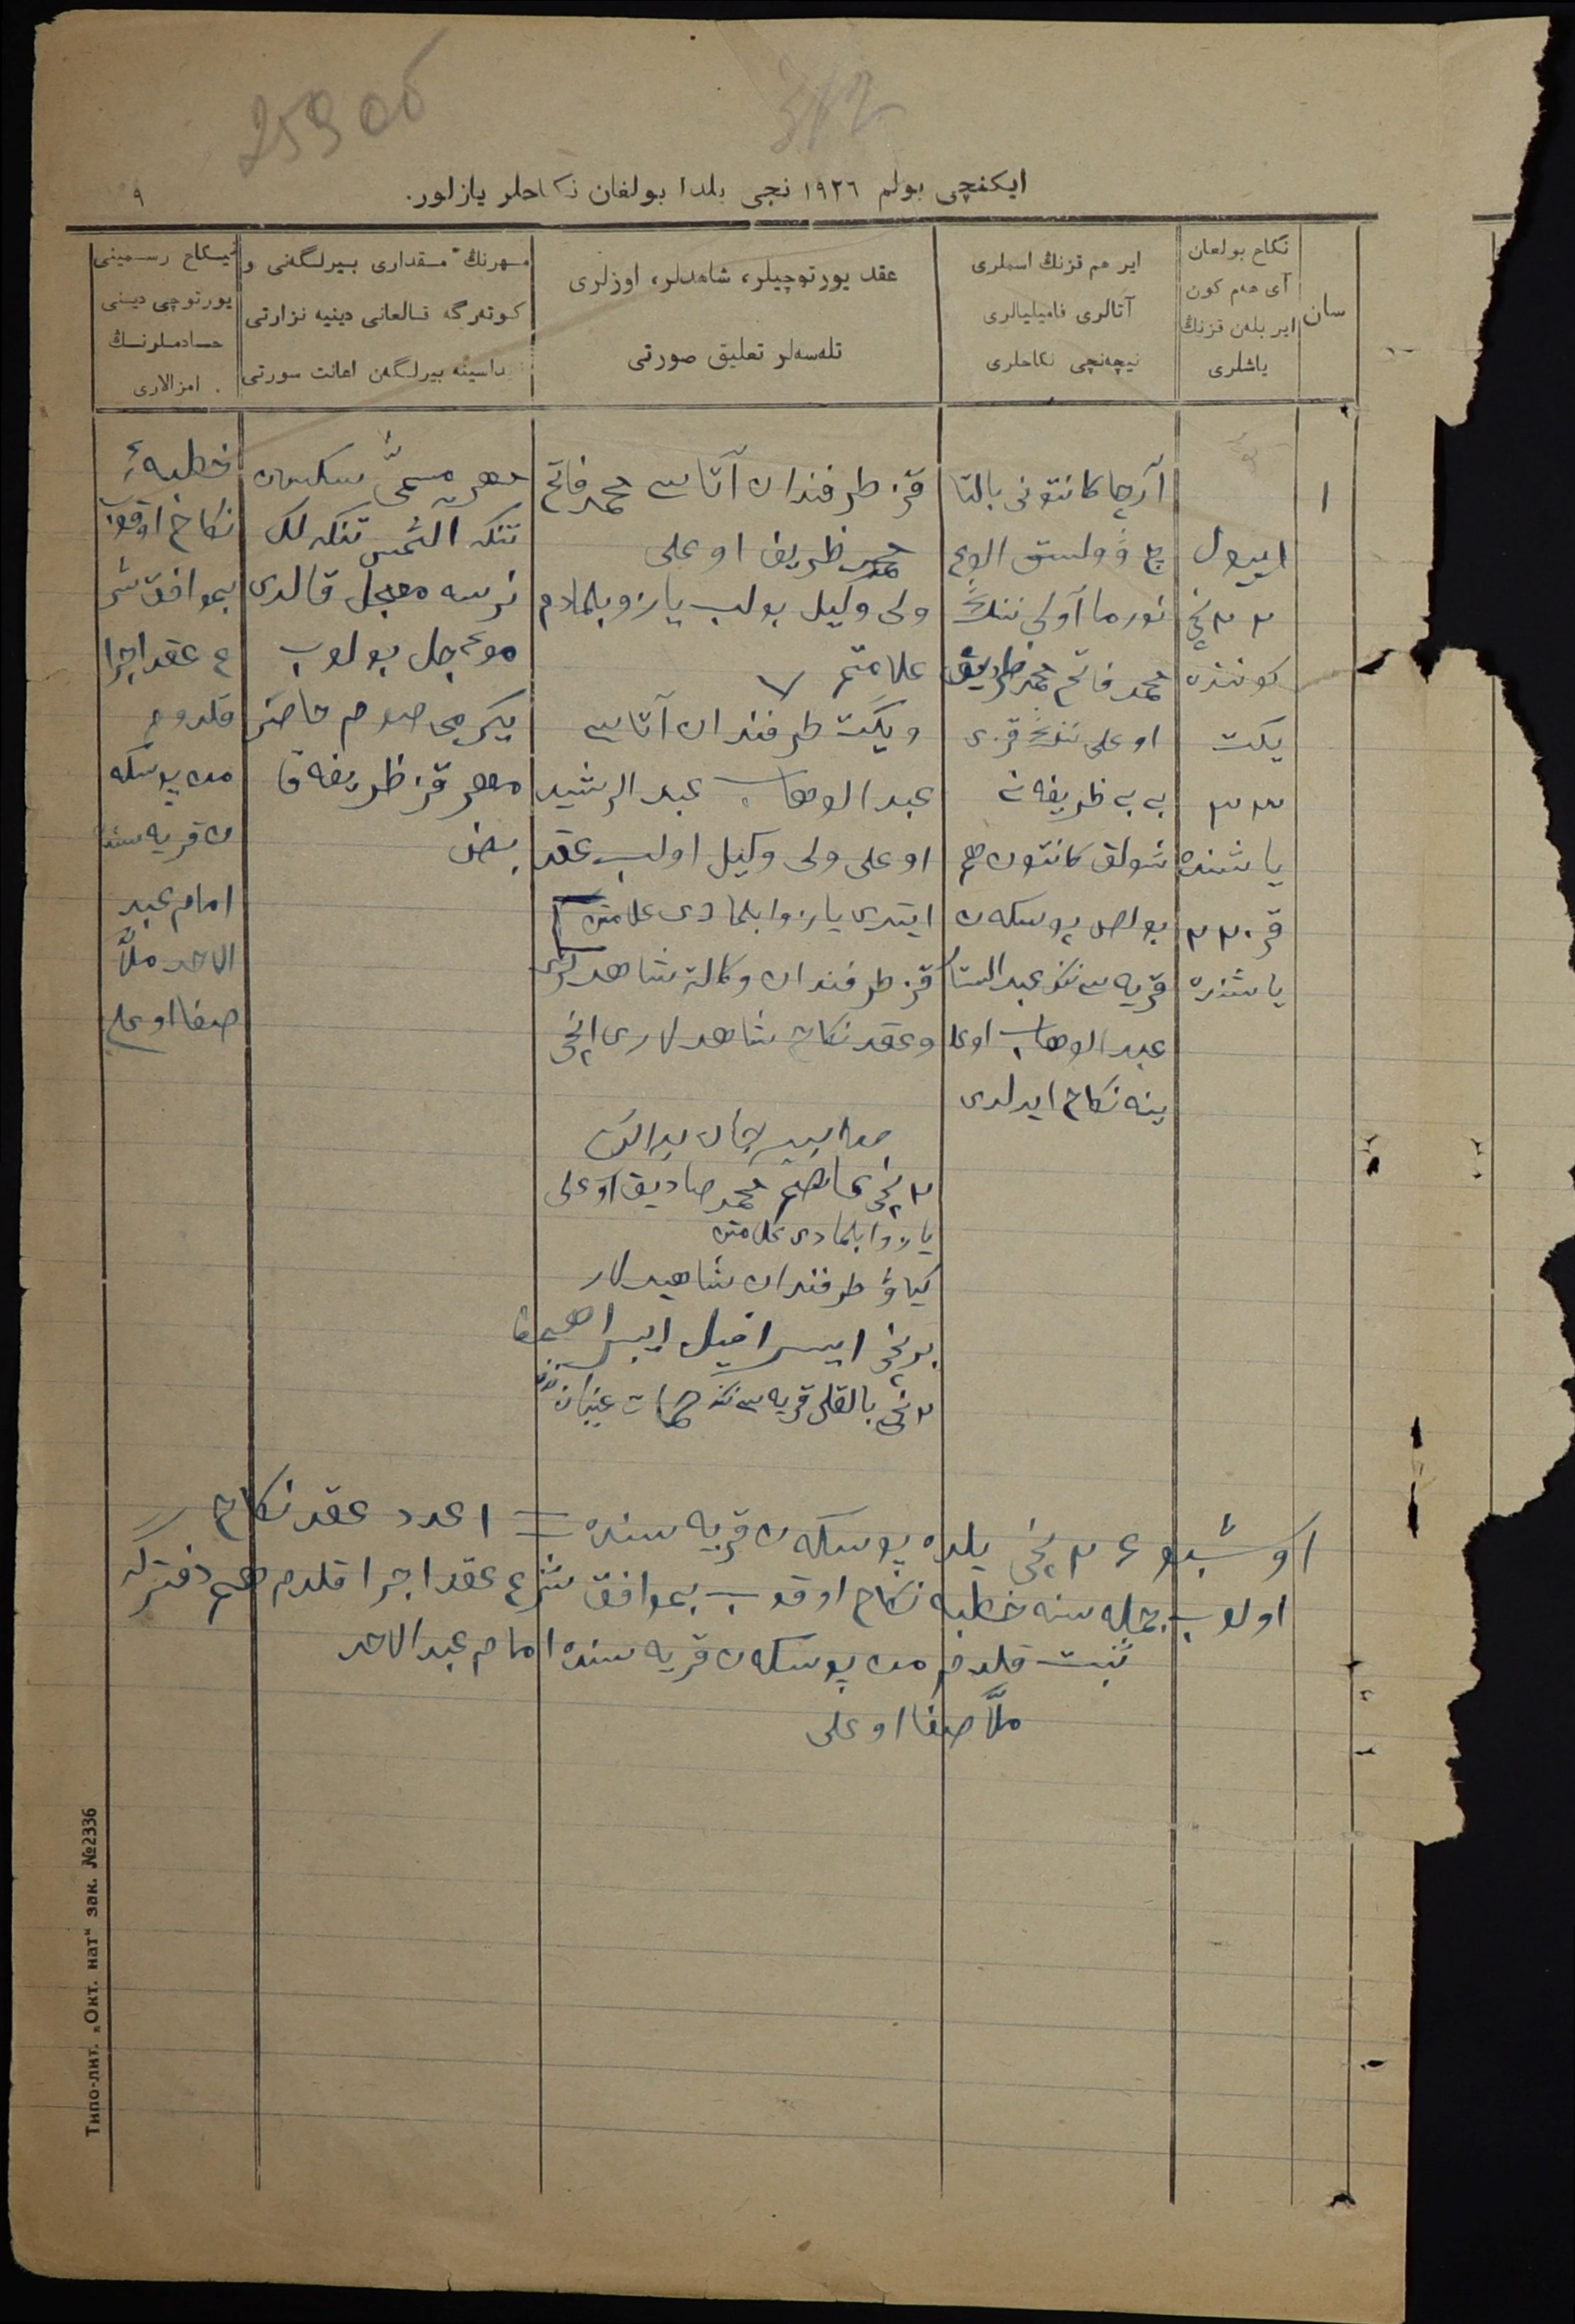 259 об
312
ایکنچی بولم ۱۹۲٦ نجی یلدا بولغان نکاحلر یازلور.
۹
سان
نکاح بولغان
آی هەم کون
ایر بلەن قزنڭ
یاشلری
ایر هم قزنڭ اسملری
آتالری فامیلیالری
نیچەنچی نکاحلری
عقد یورتوچیلر، شاهدلر، اوزلری
تلەسەلر تعلیق صورتی
مهرنڭ مقداری بیرلگەنی و
کوتەرگه قالغانی دینیه نزارتی
اعانت سورتی
نیکاح رسمینی
یورتوچی دینی
خادملرنڭ
امزالاری
۱
اییول
۲۲ نچی
کوننده
یکت
۲۳
یاشنده
قز ۲۲
یاشنده
آرچا کانتونی بالتا
چ وولستی الوغ
نورما آولی ننڭ
محمد فاتح محمد ظریف
اوغلی ننڭ قزی
بی بی ظریفه نی
شولق کانتون هم
بولص پوسکەن
قریه سی ننڭ عبد الستار
عبد الوهاب اوغلی
ینه نکاح ایدلدی
قز طرفندان آتاسی محمد فاتح
محمد ظریف اوغلی
ولی وکیل بولب یازو بلمادم
علامتم ٧
ویکت طرفندان آتاسی
عبد الوهاب عبد الرشید
اوغلی ولی وکیل اولب عقد
ایتدی یازوا بلمادی علامتی
قز طرفندان وکالة شاهدلری
وعقد نکاح شاهدلاری ۱نچی
۲ نچی محمد صادیق اوغلی
یازوا بلمادی علامتی
کیاو طرفندان شاهیدلار
برنچی ایسرافیل ایبراهیم
۲ نچی بالقلی قریه سی ننڭ
مهر مسمی سکسان
تنکه التمش تنکه لک
نرسه معجل قالدی
موءجل بولوب
یکرمی صوم حاضر
مهر قز ظریفه قا
بض
خطبهٔ
نکاح اوقوب
بموافق شر
ع عقد اجرا
قلدوم
من پوسکه
ن قریه سنده
امام عبد
الاحد ملّا
صفا اوغلی
اوشبو ۲٦ نچی یلده پوسکەن قریه سنده = ۱ عدد عقد نکاح
اولوب جمله سنه خطبه نکاح اوقوب بموافق شرع عقد اجرا قلدم هم دفترگه
ثبت قلدم من پوسکەن قریه سنده امام عبد الاحد
ملّا صفا اوغلی
Типо-лит. „Окт. нат“ зак. №2336